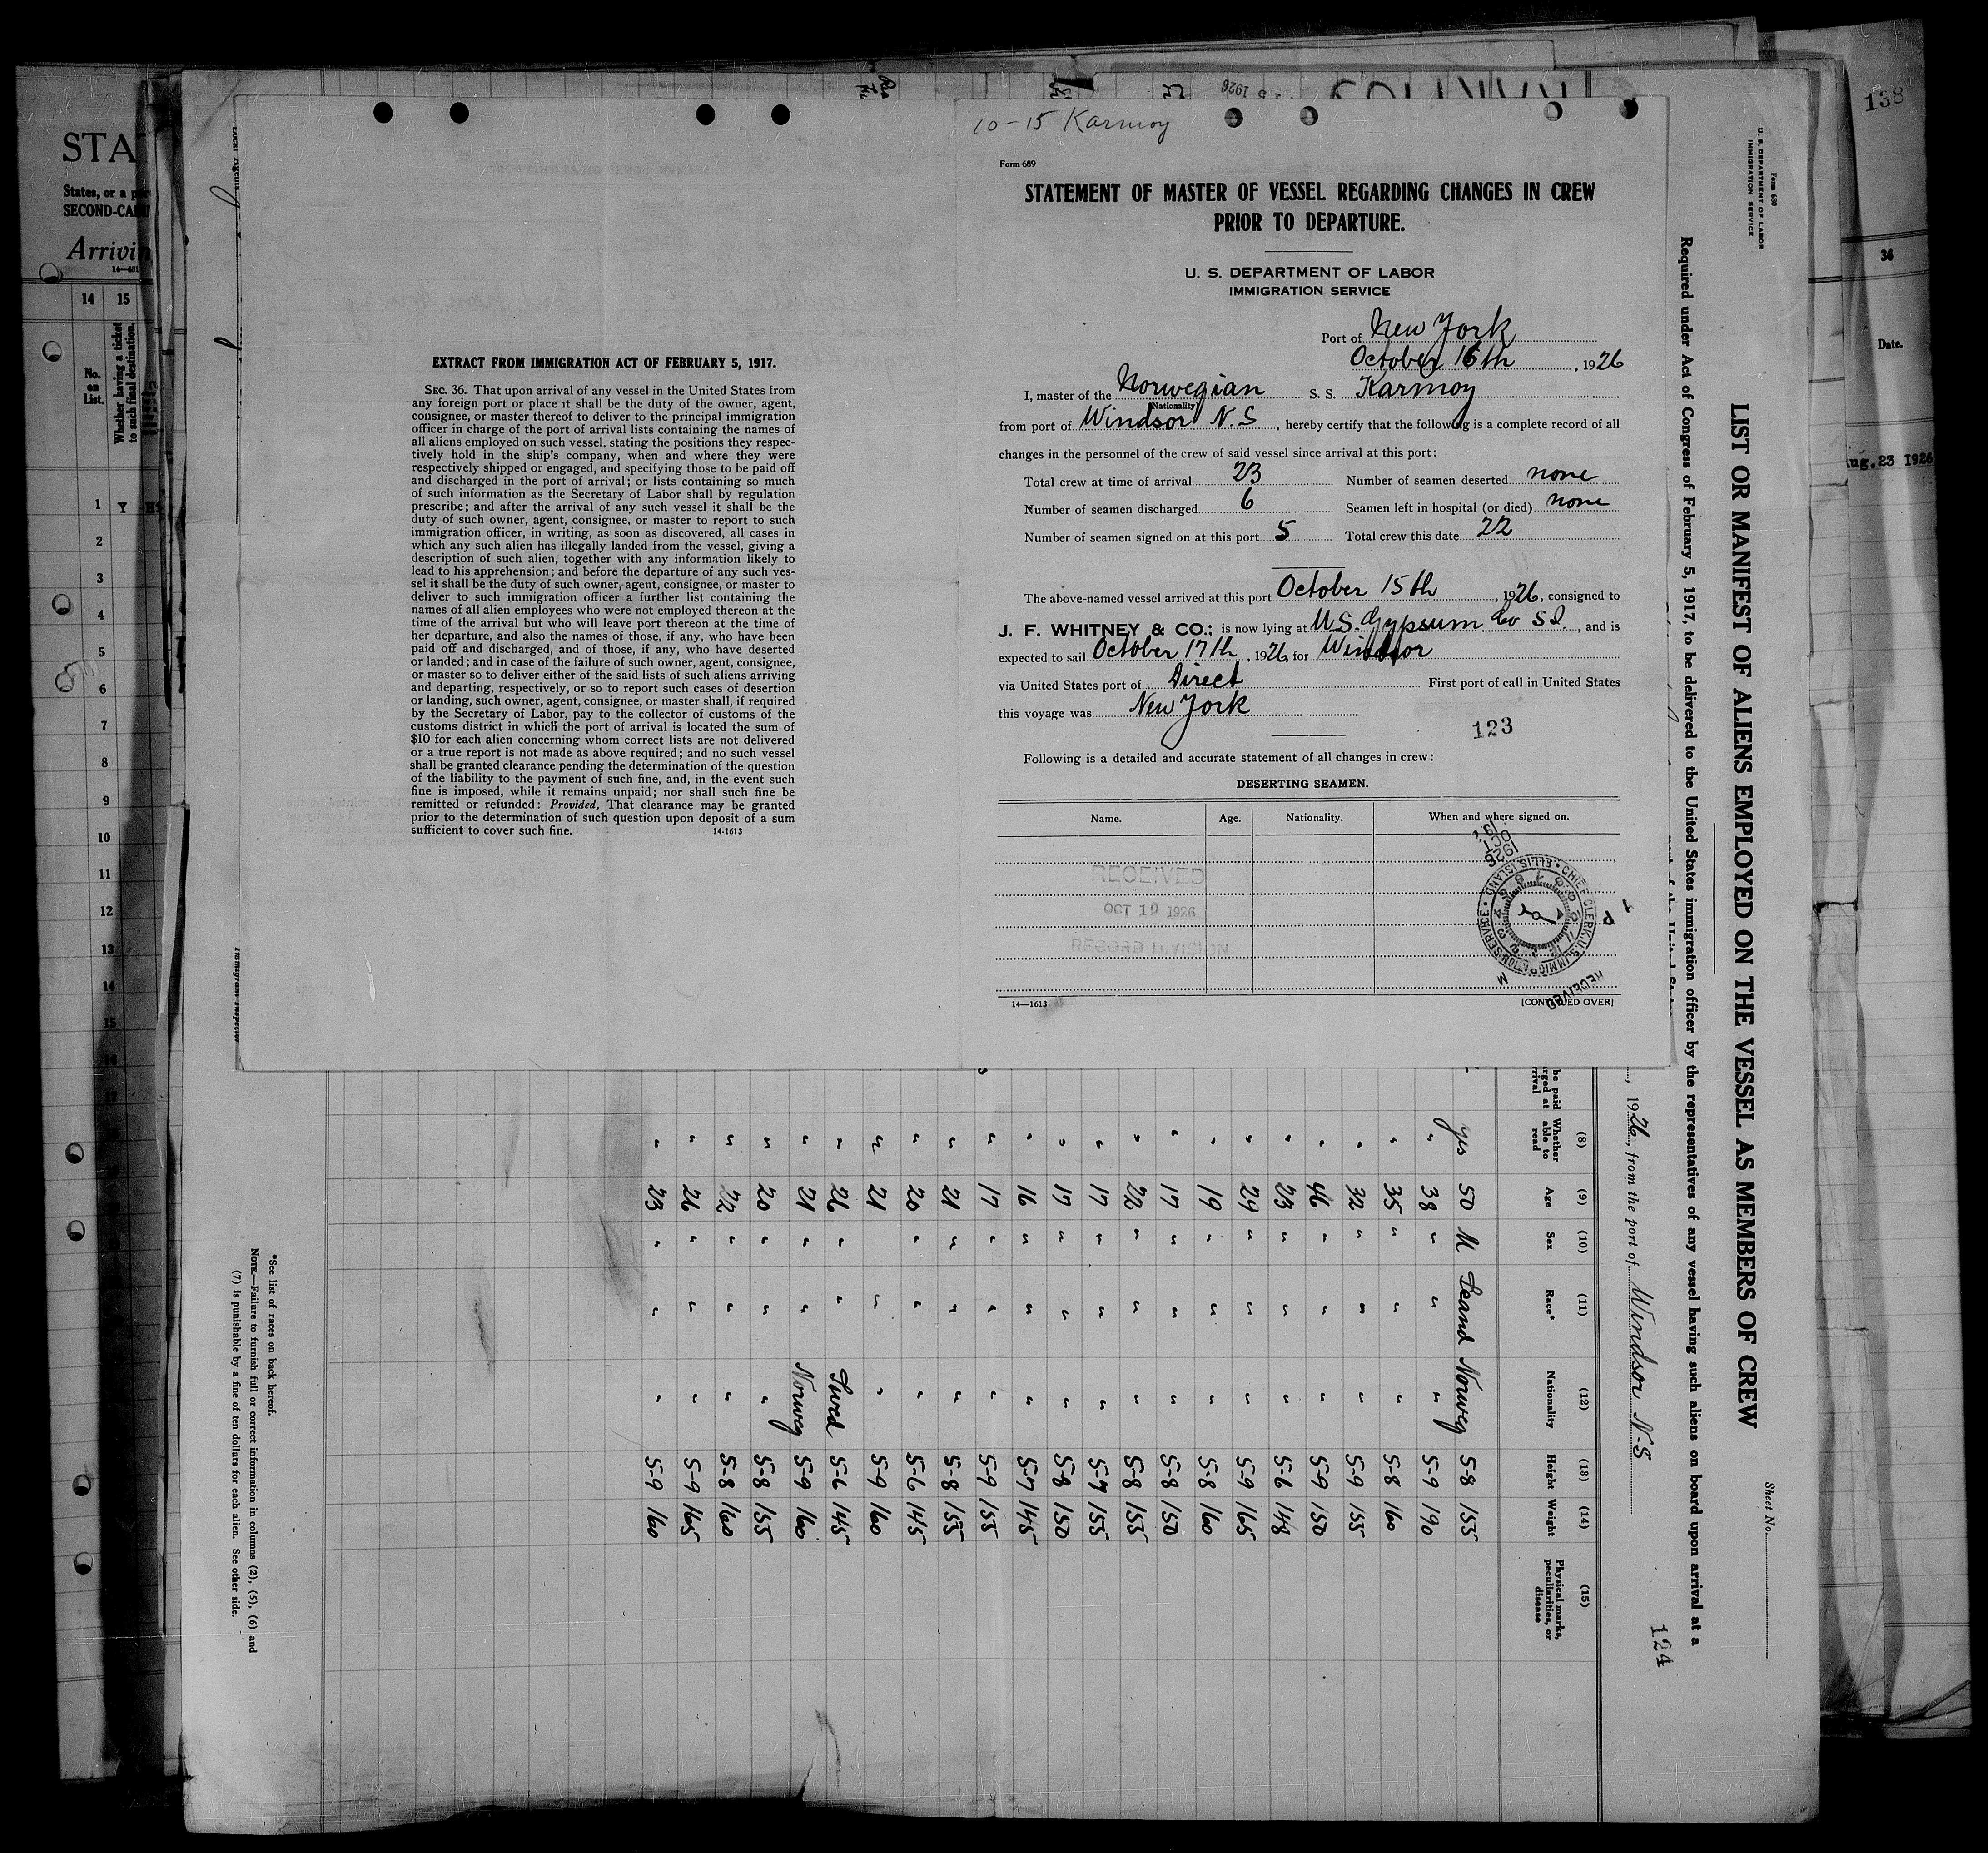 10-15 Karmoy
Form 689
STATEMENT OF MASTER OF VESSEL REGARDING CHANGES IN CREW
PRIOR TO DEPARTURE.
U. S. DEPARTMENT OF LABOR
IMMIGRATION SERVICE
Port of New York
October 16th, 1926
I, master of the Norwegian S. S. Karmoy
(Nationality)
from port of Windsor N.S, hereby certify that the following is a complete record of all
changes in the personnel of the crew of said vessel since arrival at this port:
Total crew at time of arrival 23 Number of seamen deserted none
Number of seamen discharged 6 Seamen left in hospital (or died) none
Number of seamen signed on at this port 5 Total crew this date 22
The above-named vessel arrived at this port October 15th, 1926, consigned to
J. F. WHITNEY & CO.; is now lying at U.S. Gypsum Co S.I., and is
expected to sail October 17th, 1926, for Windsor
via United States port of Direct First port of call in United States
this voyage was New York
123
Following is a detailed and accurate statement of all changes in crew:
DESERTING SEAMEN.
Name. Age. Nationality. When and where signed on.
RECEIVED
OCT 19 1926
RECORD DIVISION
CHIEF CLERK, U.S. IMMIGRATION SERVICE • ELLIS ISLAND •
RECEIVED
14—1613
[CONTINUED OVER]
EXTRACT FROM IMMIGRATION ACT OF FEBRUARY 5, 1917.
SEC. 36. That upon arrival of any vessel in the United States from
any foreign port or place it shall be the duty of the owner, agent,
consignee, or master thereof to deliver to the principal immigration
officer in charge of the port of arrival lists containing the names of
all aliens employed on such vessel, stating the positions they respec-
tively hold in the ship's company, when and where they were
respectively shipped or engaged, and specifying those to be paid off
and discharged in the port of arrival; or lists containing so much
of such information as the Secretary of Labor shall by regulation
prescribe; and after the arrival of any such vessel it shall be the
duty of such owner, agent, consignee, or master to report to such
immigration officer, in writing, as soon as discovered, all cases in
which any such alien has illegally landed from the vessel, giving a
description of such alien, together with any information likely to
lead to his apprehension; and before the departure of any such ves-
sel it shall be the duty of such owner, agent, consignee, or master to
deliver to such immigration officer a further list containing the
names of all alien employees who were not employed thereon at the
time of the arrival but who will leave port thereon at the time of
her departure, and also the names of those, if any, who have been
paid off and discharged, and of those, if any, who have deserted
or landed; and in case of the failure of such owner, agent, consignee,
or master so to deliver either of the said lists of such aliens arriving
and departing, respectively, or so to report such cases of desertion
or landing, such owner, agent, consignee, or master shall, if required
by the Secretary of Labor, pay to the collector of customs of the
customs district in which the port of arrival is located the sum of
$10 for each alien concerning whom correct lists are not delivered
or a true report is not made as above required; and no such vessel
shall be granted clearance pending the determination of the question
of the liability to the payment of such fine, and, in the event such
fine is imposed, while it remains unpaid; nor shall such fine be
remitted or refunded: Provided, That clearance may be granted
prior to the determination of such question upon deposit of a sum
sufficient to cover such fine. 14-1613
Form 680
U. S. DEPARTMENT OF LABOR
IMMIGRATION SERVICE
Sheet No.
LIST OR MANIFEST OF ALIENS EMPLOYED ON THE VESSEL AS MEMBERS OF CREW
Required under Act of Congress of February 5, 1917, to be delivered to the United States immigration officer by the representatives of any vessel having such aliens on board upon arrival at a
124
, 1926, from the port of Windsor N-S
(8) (9) (10) (11) (12) (13) (14) (15)
Whether able to read Age Sex Race* Nationality Height Weight Physical marks, peculiarities, or disease
yes 50 M Scand Norweg 5-8 155
" 38 " " " 5-9 190
" 35 " " " 5-8 160
" 32 " " " 5-9 155
" 46 " " " 5-9 150
" 23 " " " 5-6 148
" 24 " " " 5-9 165
" 19 " " " 5-8 160
" 17 " " " 5-8 150
" 22 " " " 5-8 155
" 17 " " " 5-7 155
" 17 " " " 5-8 150
" 16 " " " 5-7 145
" 17 " " " 5-9 155
" 21 " " " 5-8 155
" 20 " " " 5-6 145
" 21 " " 5-9 160
" 26 " " Swed 5-6 145
" 21 " " Norweg 5-9 160
" 20 " " " 5-8 155
" 22 " " " 5-8 160
" 26 " " " 5-9 165
" 23 " " " 5-9 160
*See list of races on back hereof.
NOTE.—Failure to furnish full or correct information in columns (2), (5), (6) and
(7) is punishable by a fine of ten dollars for each alien. See other side.
Immigrant Inspector
STA
States, or a
SECOND-CA
Arrivin
14 15
No. on List.
Whether having a ticket to such final destination.
1 Y
2
3
4
5
6
7
8
9
10
11
12
13
14
15
16
17
138
36
Date.
Aug. 23 1926